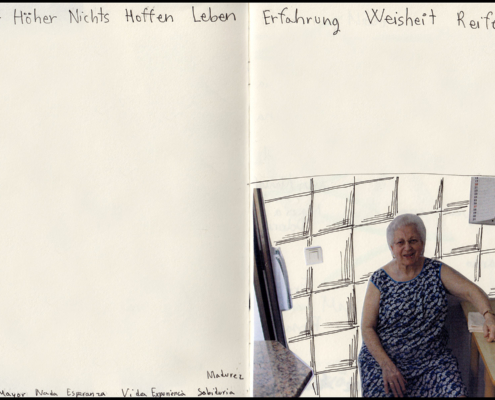 Höher Nichts Hoffen Leben Erfahrung Weisheit Reife
Madurez
Mayor Nada Esperanza Vida Experiencia Sabiduria